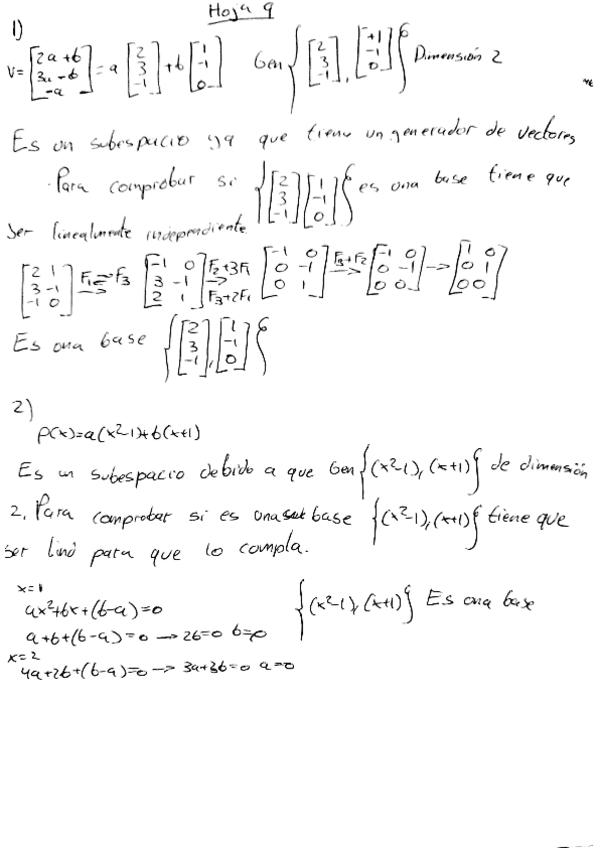 Hoja 9
1)
V = [2a+b; 3a-b; -a] = a [2; 3; -1] + b [1; -1; 0] Gen {[2; 3; -1], [+1; -1; 0]} Dimensión 2
Es un subespacio ya que tiene un generador de vectores
Para comprobar si {[2; 3; -1] [1; -1; 0]} es una base tiene que
ser linealmente independiente
[2 1; 3 -1; -1 0] F1=F3 → [-1 0; 3 -1; 2 1] F2+3F1 F3+2F1 → [-1 0; 0 -1; 0 1] F3+F2 → [-1 0; 0 -1; 0 0] → [1 0; 0 1; 0 0]
Es una base {[2; 3; -1], [1; -1; 0]}
2)
p(x)=a(x²-1)+b(x+1)
Es un subespacio debido a que Gen {(x²-1), (x+1)} de dimensión
2. Para comprobar si es una base {(x²-1), (x+1)} tiene que
ser lind para que lo cumpla.
x=1
ax²+bx+(b-a)=0 {(x²-1), (x+1)} Es una base
a+b+(b-a)=0 → 2b=0 b=0
x=2
4a+2b+(b-a)=0 → 3a+3b=0 a=0